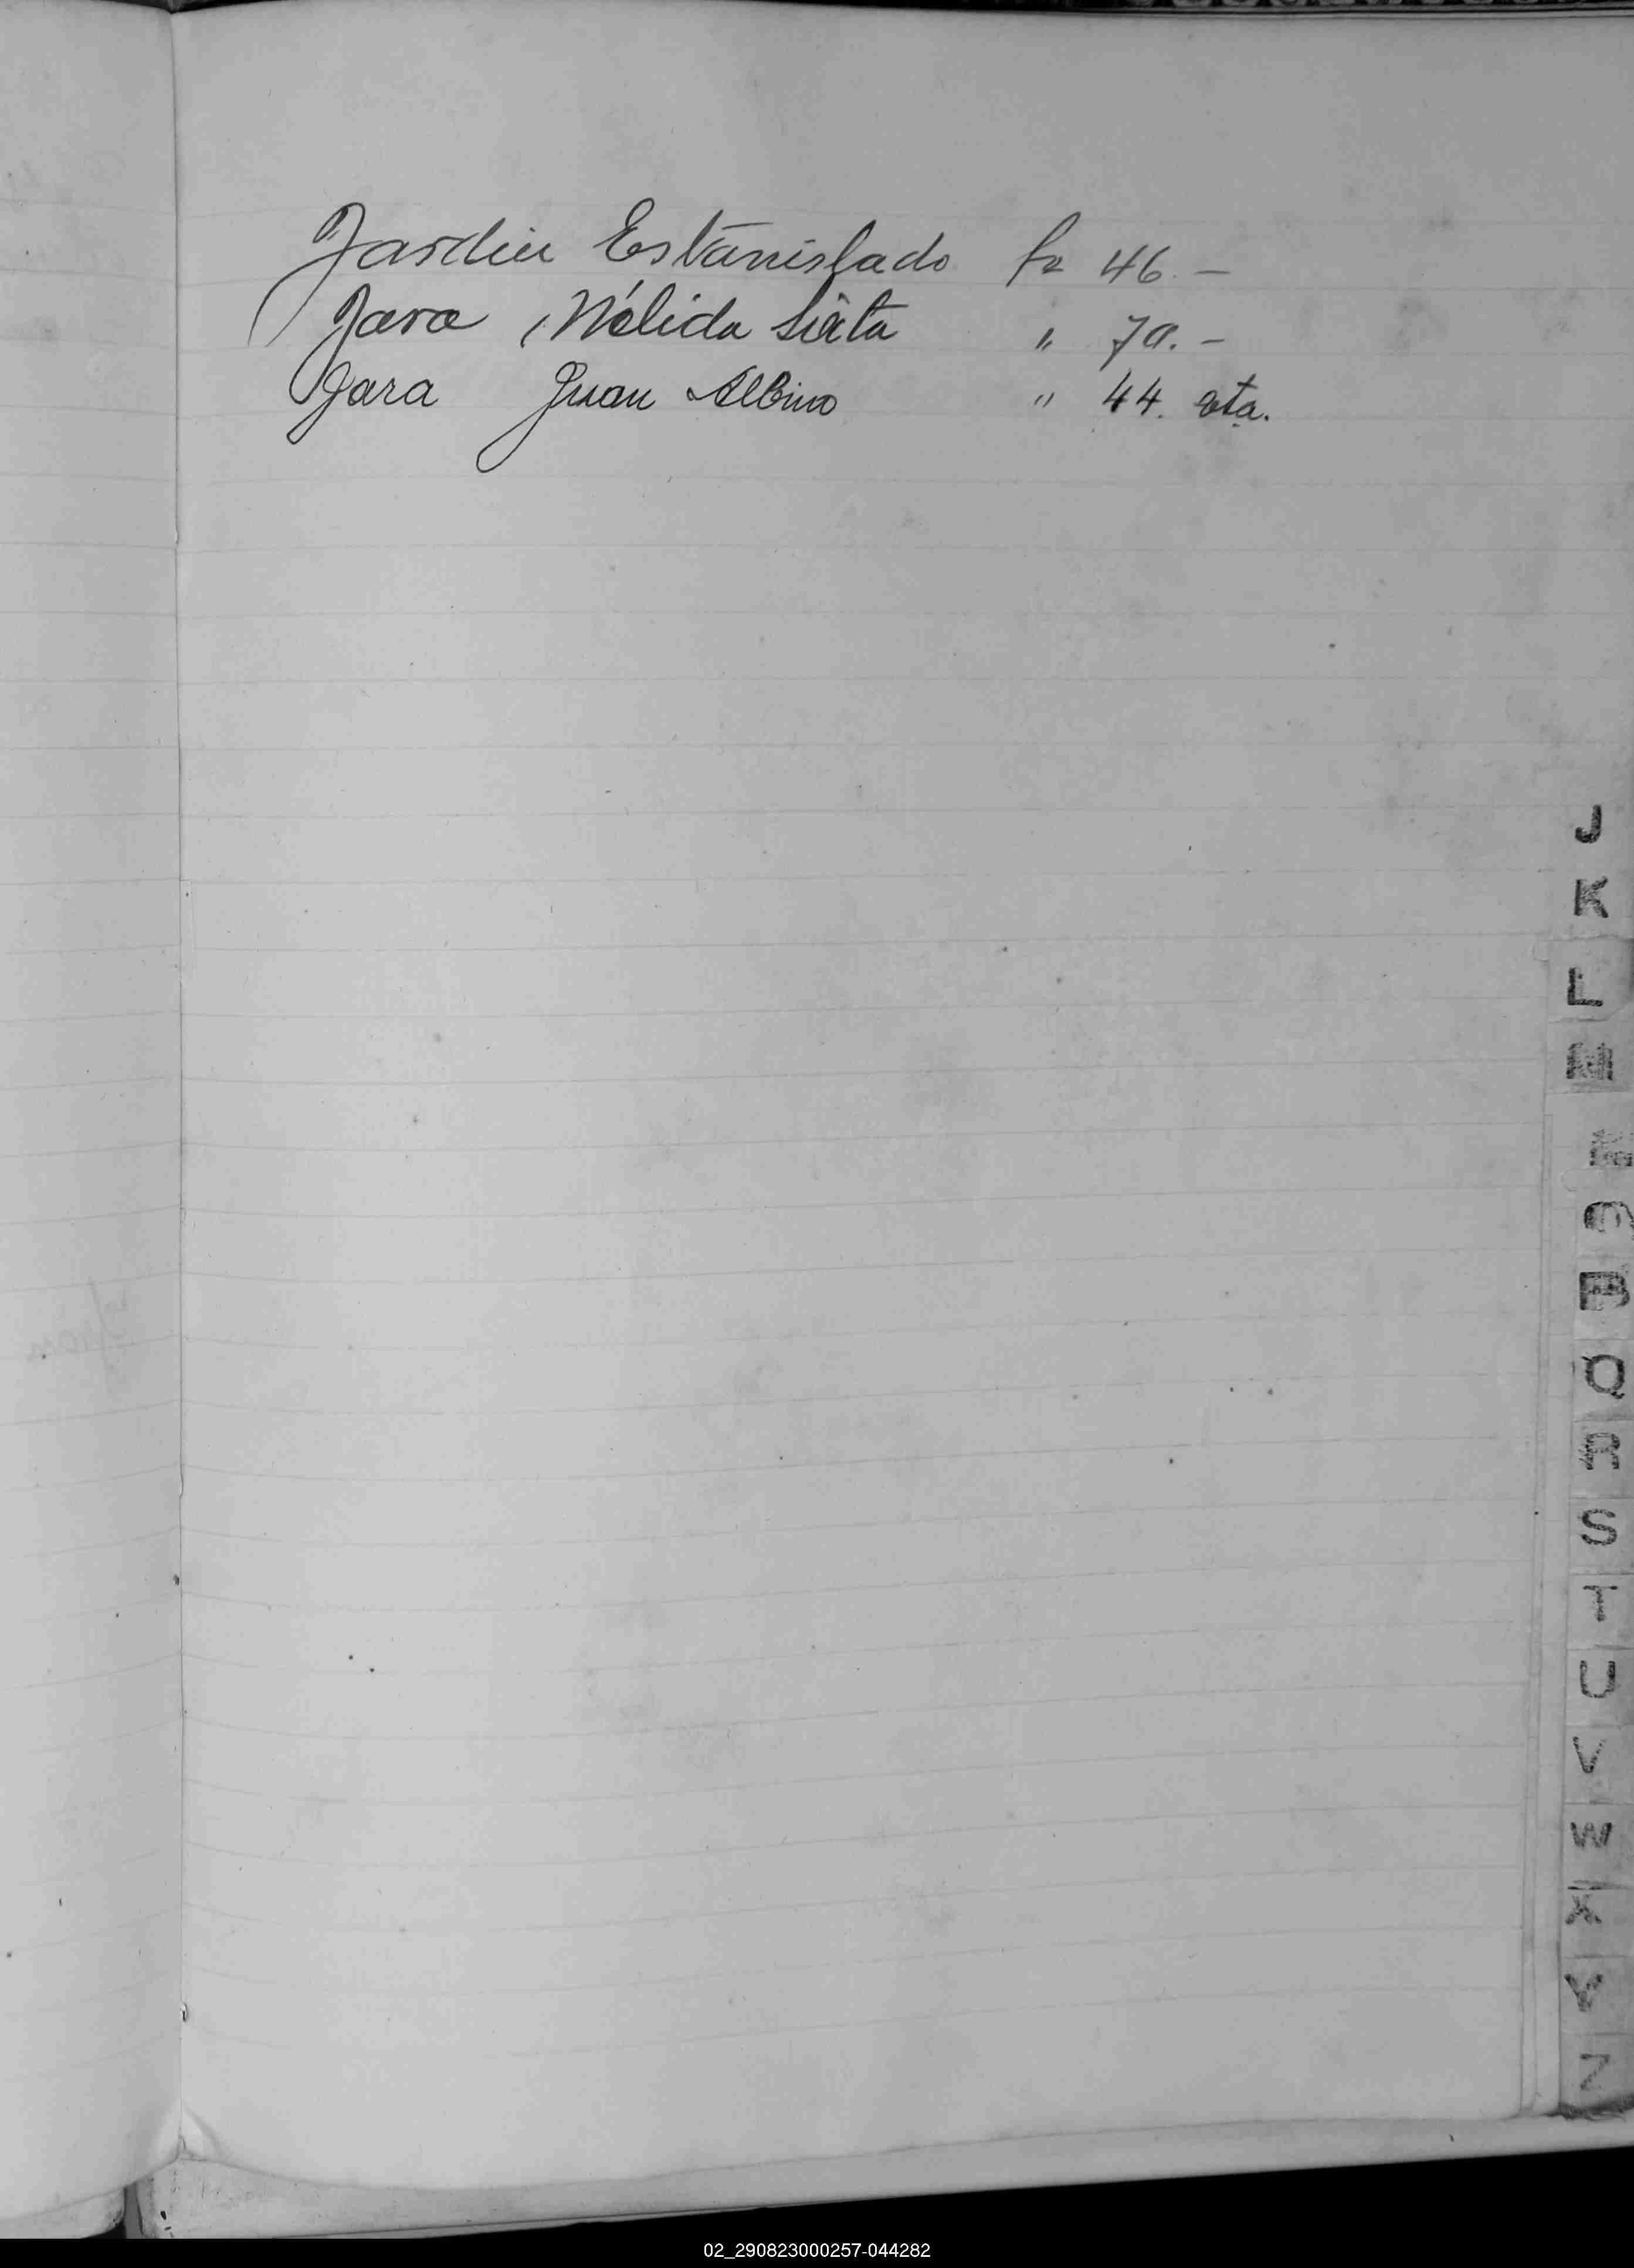 Jardin Estanislado fo 46. —
Jara, Nélida Sixta " 70. —
Jara Juan Albino " 44. vta.
J
K
L
M
N
O
P
Q
R
S
T
U
V
W
X
Y
Z
02_290823000257-044282